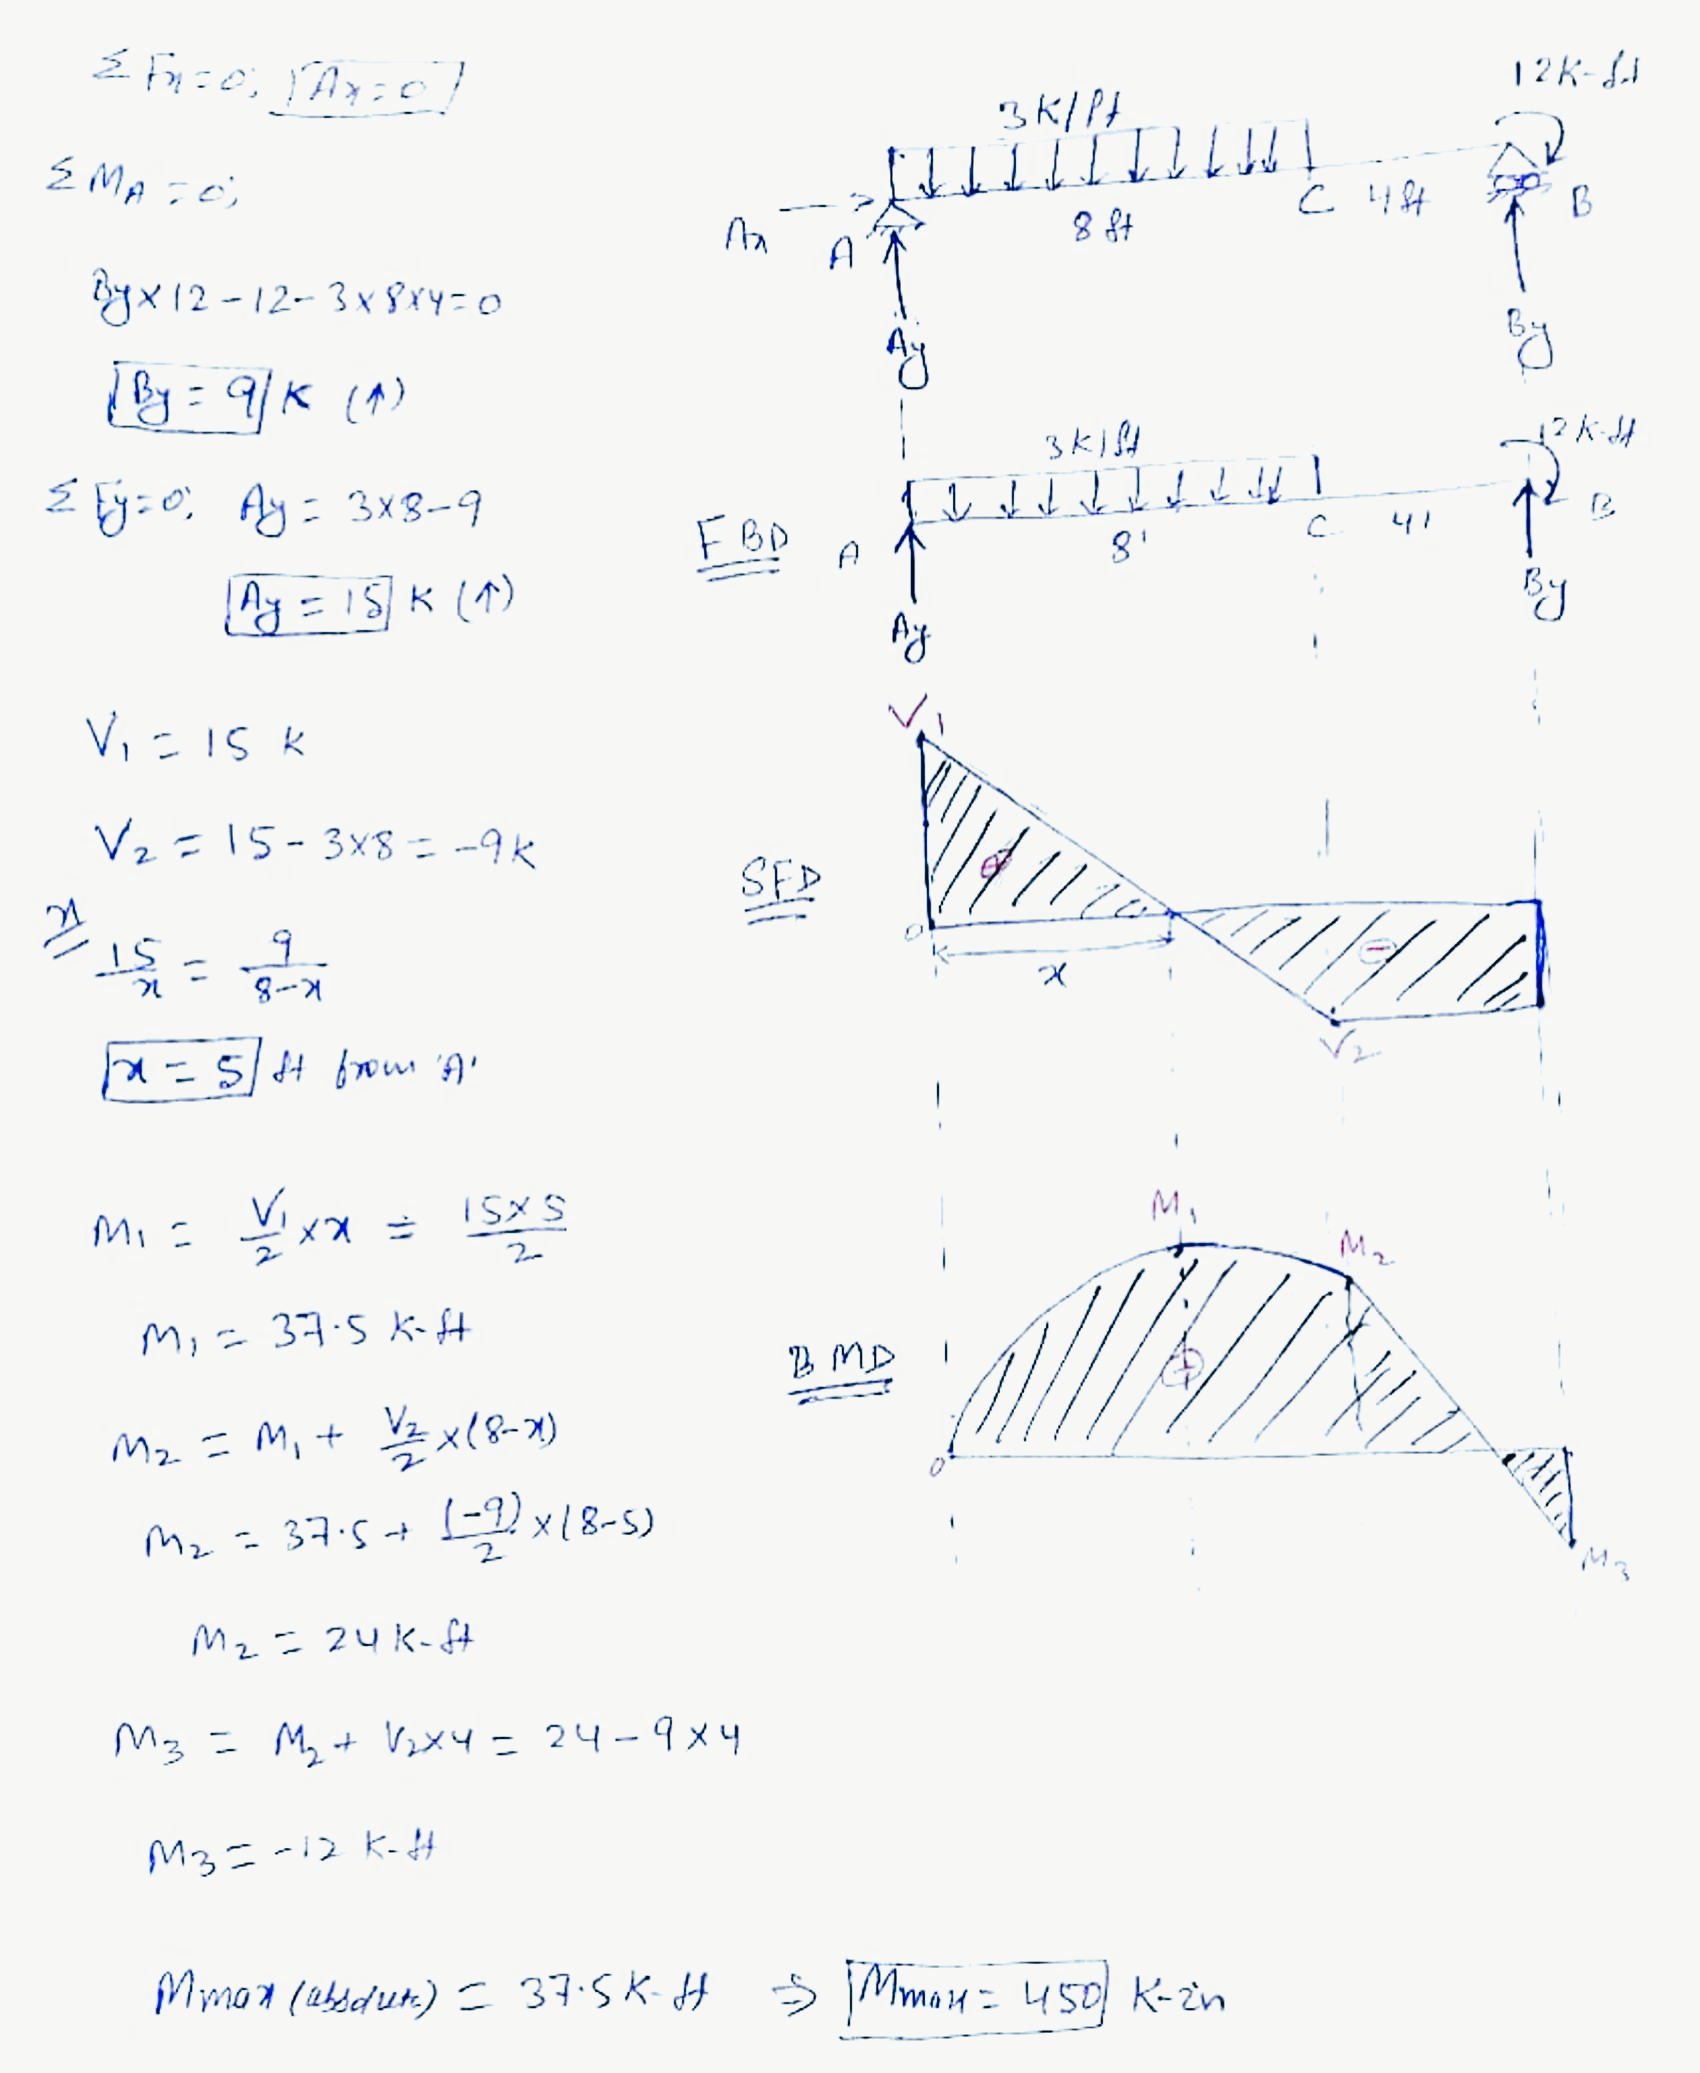 Σ Fx=0; Ax=0
Σ MA =0;
By×12-12-3×8×4=0
By = 9 K (↑)
Σ Fy=0; Ay = 3×8-9
Ay = 15 K (↑)
V1 = 15 K
V2 = 15-3×8 = -9K
x
15/x = 9/(8-x)
x = 5 ft from 'A'
M1 = V1/2 × x = 15×5/2
M1 = 37.5 K-ft
M2 = M1 + V2/2 ×(8-x)
M2 = 37.5 + (-9)/2 ×(8-5)
M2 = 24 K-ft
M3 = M2 + V2×4 = 24-9×4
M3 = -12 K-ft
Mmax (absolute) = 37.5 K-ft ⇒ Mmax = 450 K-in
12K-ft
3K/ft
Ax A 8 ft C 4ft B
Ay By
3K/ft 12K-ft
FBD A 8' C 4' B
Ay By
V1
SFD ⊕ ⊖
0 x
V2
M1 M2
BMD ⊕
0
M3